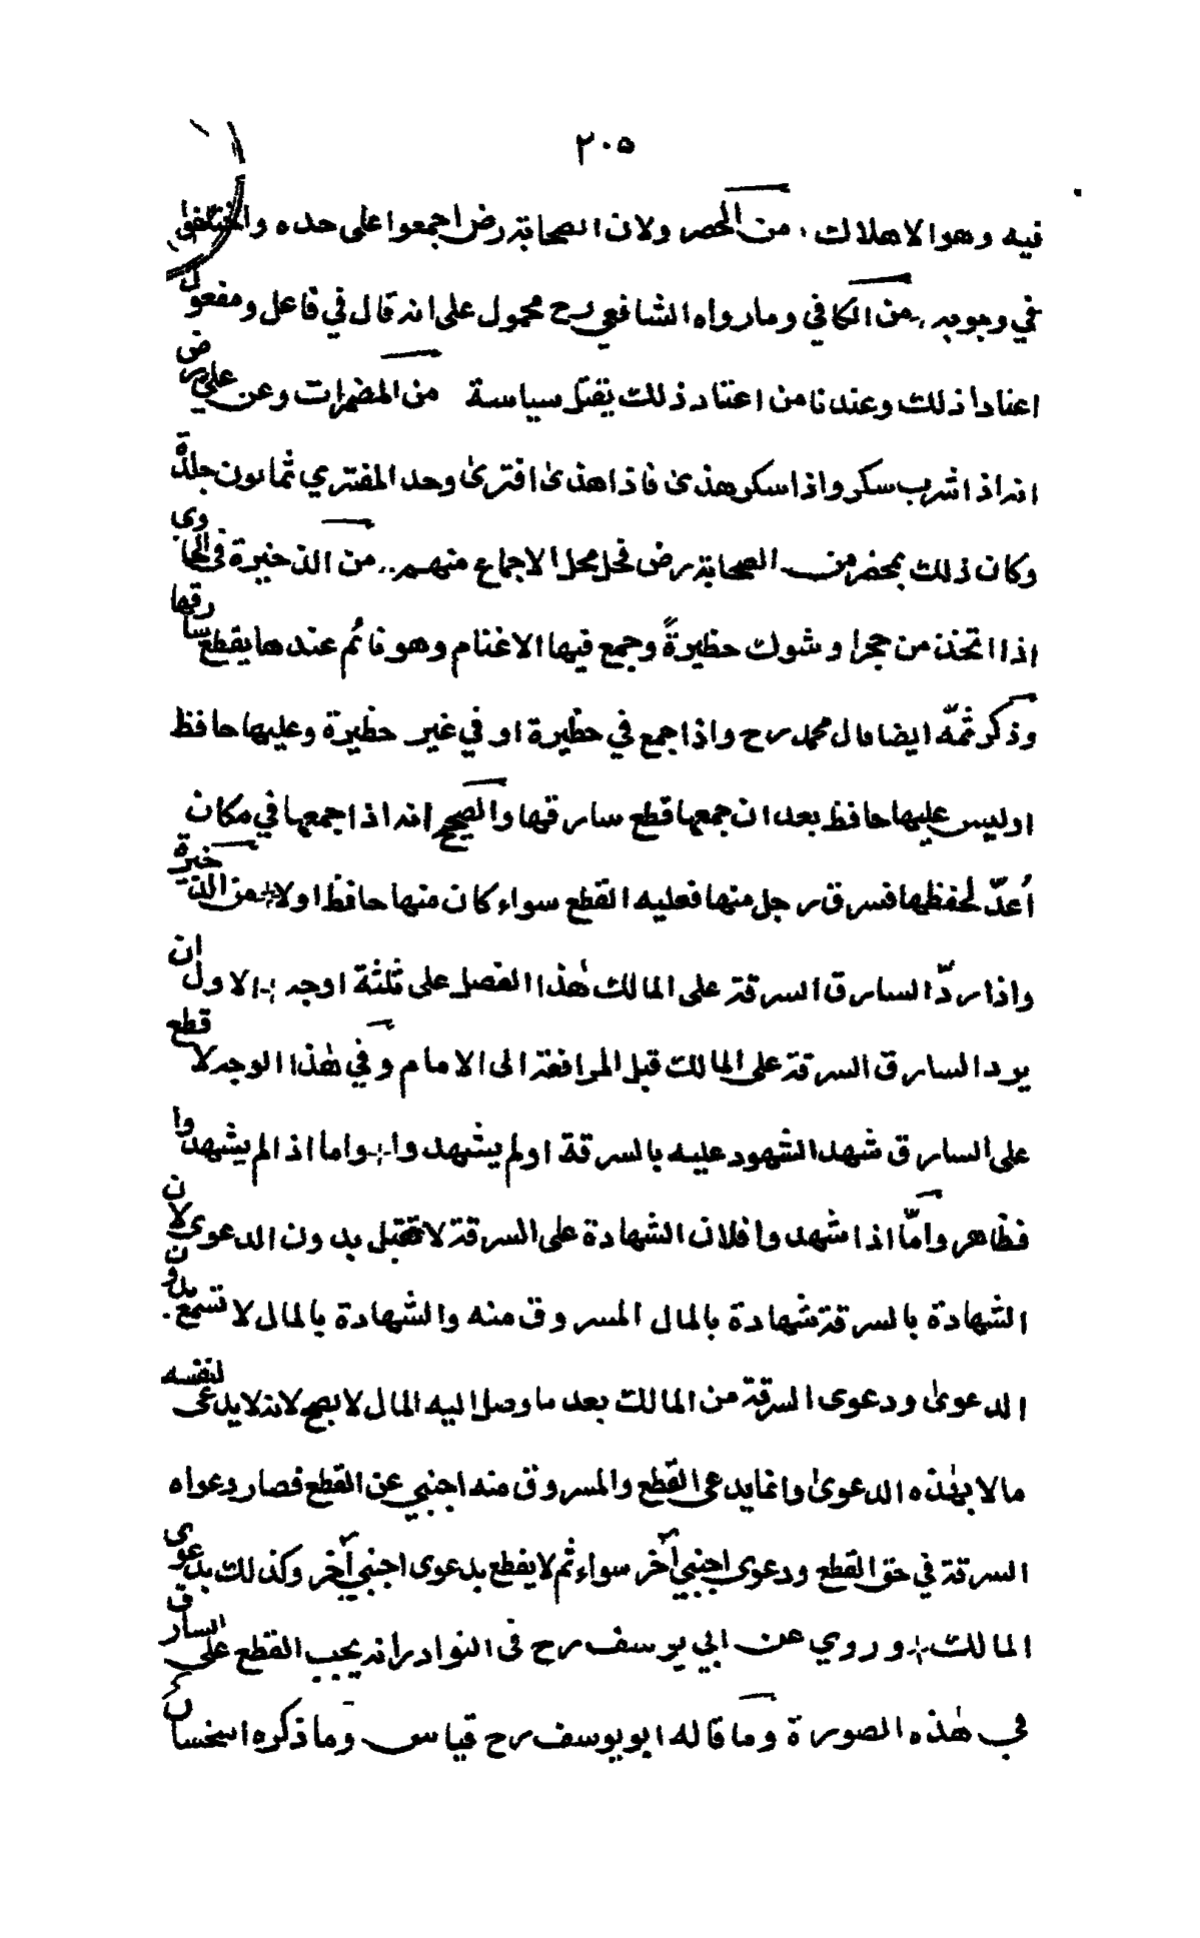 ٢٠٥
فيه وهو الاهلاك، من الحصر ولان الصحابة رض اجمعوا على حده واختلفوا
في وجوبه، من الكافي وما رواه الشافعي رح محمول على انه قال في فاعل ومفعول
اعتاد ذلك وعندنا من اعتاد ذلك يقتل سياسة من المضمرات وعن علي رض
انه اذا شرب سكر واذا سكر هذى فاذا هذى افترى وحد المفتري ثمانون جلدة
وكان ذلك بمحضر من الصحابة رض فحل محل الاجماع منهم.. من الذخيرة في الحاوى
اذا اتخذ من حجر او شوك حظيرةً وجمع فيها الاغنام وهو نائم عندها يقطع سارقها
وذكر ثمّه ايضا قال محمد رح واذا جمع في حظيرة او في غير حظيرة وعليها حافظ
او ليس عليها حافظ بعد ان جمعها قطع سارقها والصحيح انه اذا جمعها في مكان
اُعدّ لحفظها فسرق رجل منها فعليه القطع سواء كان منها حافظ اولا من الذخيرة
واذا ردّ السارق السرقة على المالك هٰذا الفصل على ثلثة اوجه الاول ان
يرد السارق السرقة على المالك قبل المرافعة الى الامام وفي هٰذا الوجه لا قطع
على السارق شهد الشهود عليه بالسرقة اولم يشهدوا واما اذا لم يشهدوا
فظاهر وامّا اذا شهدوا فلان الشهادة على السرقة لا تقبل بدون الدعوى لان
الشهادة بالسرقة شهادة بالمال المسروق منه والشهادة بالمال لا تسمع بدون
الدعوىٰ ودعوى السرقة من المالك بعد ما وصل اليه المال لا يصح لانه لا يدعى لنفسه
مالا بهٰذه الدعوىٰ وانما يدعى القطع والمسروق منه اجنبي عن القطع فصار دعواه
السرقة في حق القطع ودعوى اجنبي آخر سواء ثم لا يقطع بدعوى اجنبي آخر وكذلك بدعوى
المالك وروي عن ابي يوسف رح فى النوادر انه يجب القطع على السارق
في هٰذه الصورة وما قاله ابو يوسف رح قياس وما ذكره استحسان